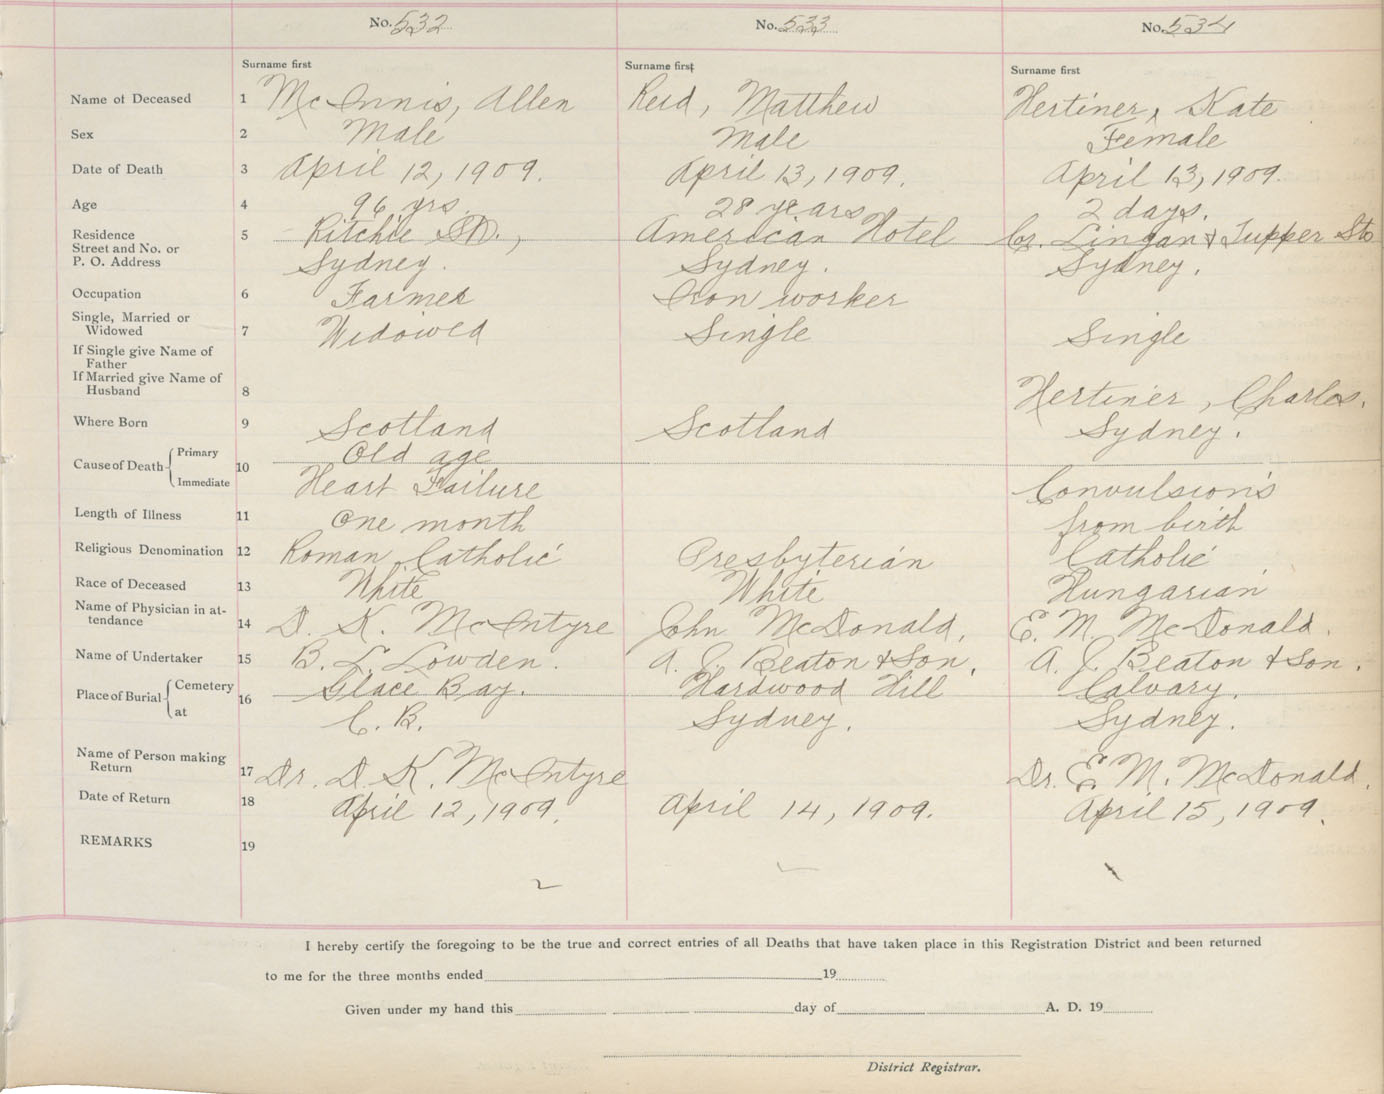 No. 532 No. 533 No. 534
Surname first Surname first Surname first
Name of Deceased 1 McInnis, Allen Reid, Matthew Hertiner, Kate
Sex 2 Male Male Female
Date of Death 3 April 12, 1909. April 13, 1909. April 13, 1909.
Age 4 96 yrs. 28 years 2 days.
Residence 5 Ritchie St., American Hotel Cr. Lingan & Tupper Sts
Street and No. or
P. O. Address Sydney. Sydney. Sydney.
Occupation 6 Farmer Iron worker
Single, Married or
Widowed 7 Widowed Single Single
If Single give Name of
Father
If Married give Name of
Husband 8 Hertiner, Charles.
Where Born 9 Scotland Scotland Sydney.
Cause of Death Primary 10 Old age
Immediate Heart Failure Convulsions
Length of Illness 11 One month from birth
Religious Denomination 12 Roman Catholic Presbyterian Catholic
Race of Deceased 13 White White Hungarian
Name of Physician in at-
tendance 14 D. K. McIntyre John McDonald, E. M. McDonald.
Name of Undertaker 15 B. L. Lowden. A. J. Beaton & Son. A. J. Beaton & Son.
Place of Burial Cemetery 16 Glace Bay. Hardwood Hill Calvary.
at C. B. Sydney. Sydney.
Name of Person making
Return 17 Dr. D. K. McIntyre Dr. E. M. McDonald.
Date of Return 18 April 12, 1909. April 14, 1909. April 15, 1909.
REMARKS 19
I hereby certify the foregoing to be the true and correct entries of all Deaths that have taken place in this Registration District and been returned
to me for the three months ended 19
Given under my hand this day of A. D. 19
District Registrar.